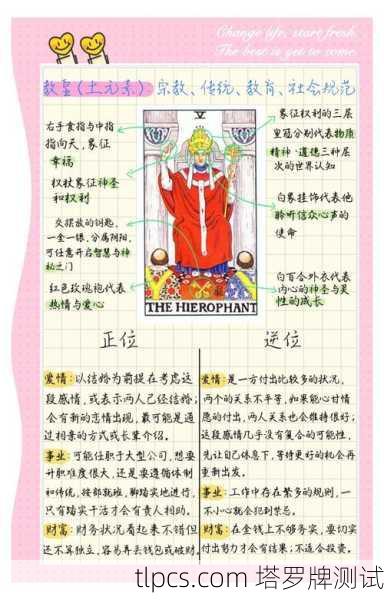 Change life, start fresh.
The best is yet to come.
教皇(土元素) 宗教、传统、教育、社会规范
右手食指与中指
指向天,象征
幸福
权杖象征神圣
和权利
交摆放的钥匙,
一金一银,分属阴阳,
可任意开启智慧与神
秘之门
红色玫瑰袍代表
热情与爱心
V
THE HIEROPHANT
象征权利的三层
皇冠分别代表物质
精神、道德三种层
次的世界认知
白象挂饰代表他
聆听信众心声的
使命
白百合外衣代表
内心的神圣与灵
性的成长
正位
爱情:以结婚为前提在考虑这
段感情,或表示两人已经结婚;
会有新的恋情出现,最可能是通
过相亲的方式或长辈介绍。
事业:可能任职于大型公司,想要
升职难度很大,还是要遵循体制
和传统,按部就班,脚踏实地进行,
只有踏实干活才会有贵人相助。
财富:财务状况看起来不错但
还不算独立,容易弄丢钱包或破财。
逆位
爱情:是一方付出比较多的状况,
两个的关系不平等,如果能心甘情
愿的付出,两人关系也会维持很好;
这段感情几乎没有复合的可能性,
先让自己休息下,等待更好的机会再
重新出发。
事业:工作中存在繁多的规则,一
不小心就会犯到禁忌。
财富:在金钱上不够务实,要切实
付出努力才会有结果;不适合投资。
tlpcs.com 塔罗牌测试